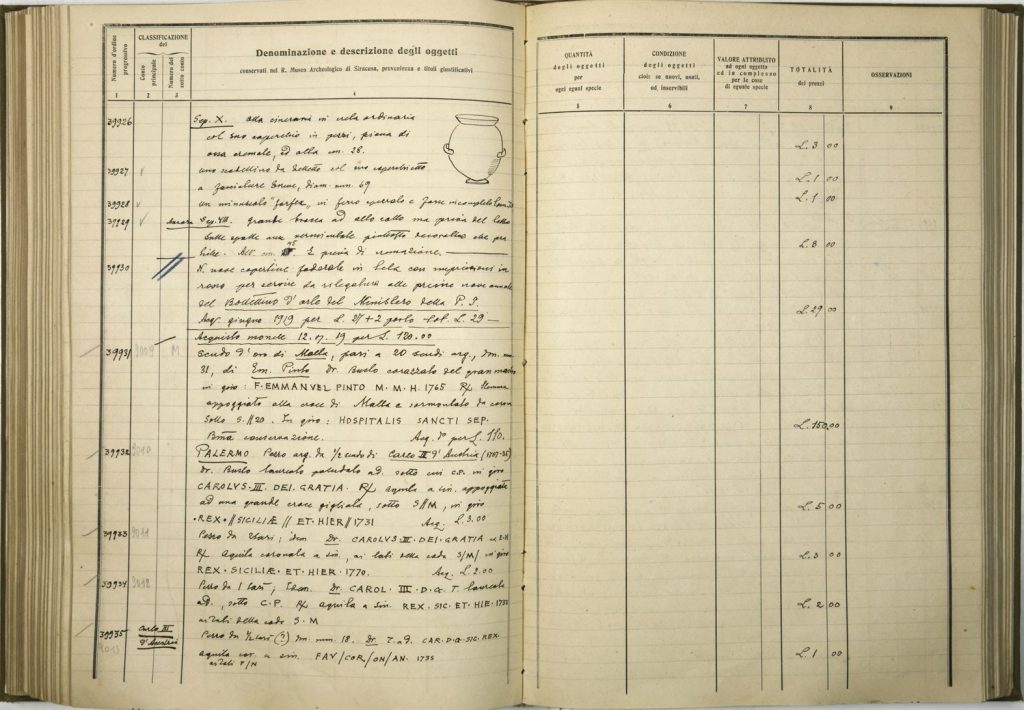 Numero d'ordine progressivo
CLASSIFICAZIONE del
Conto principale
Numero del sotto conto
Denominazione e descrizione degli oggetti
conservati nel R. Museo Archeologico di Siracusa, provenienza e titoli giustificativi
QUANTITÀ degli oggetti per ogni egual specie
CONDIZIONE degli oggetti cioè: se nuovi, usati, od inservibili
VALORE ATTRIBUITO ad ogni oggetto ed in complesso per le cose di eguale specie
TOTALITÀ dei prezzi
OSSERVAZIONI
1 2 3 4 5 6 7 8 9
39926 Sep. X. olla cineraria in creta ordinaria
col suo coperchio in pezzi, piena di
ossa cremate, ed alta cm. 28. L. 3 00
39927 uno col suo coperchietto
a diam. mm. 69 L. 1 00
39928 un minuscolo in ferro e forse incompleto L. 1 00
39929 Sep. VIII. grande ad alto collo ma priva del
sulle spalle una piuttosto che
Alt. cm. È priva di L. 8 00
39930 N. nove copertine in tela con in
rosso per servire da alle prime nove annate
del Bollettino d'arte del Ministero della P. I.
Acq. giugno 1919 per L. 27 + 2 porto tot. L. 29 L. 29 00
Acquisto monete 12.VI.19 per L. 120.00
39931 3009 M scudo d'oro di Malta, pari a 20 scudi arg., dm. mm.
31, di Em. Pinto Dr. Busto corazzato del gran maestro
in giro: F. EMMANVEL PINTO M. M. H. 1765 R/
appoggiato alla croce di Malta e sormontato da corona
Sotto S.//20. In giro: HOSPITALIS SANCTI SEP.
Bma conservazione. Acq. per L. 110. L. 150,00
39932 3010 PALERMO Pezzo arg. da 1/2 scudo di Carlo III d'Austria
Dr. Busto laureato paludato ad. sotto C.P. in giro
CAROLVS·III·DEI·GRATIA· R/ aquila a sin. appoggiata
ad una grande croce gigliata, sotto S//M, in giro
·REX·//SICILIÆ // ET·HIER // 1731 Acq. L. 3.00 L. 5 00
39933 3011 Pezzo da tarì; idem Dr. CAROLVS·III·DEI·GRATIA
R/ Aquila coronata a sin., ai lati della coda S/M/ in giro
REX·SICILIÆ·ET·HIER·1730. Acq. L. 2.00 L. 3 00
39934 3012 Pezzo da 1 tarì; Idem. Dr. CAROL III·D·G· T. laureata
ad., sotto C.P. R/ aquila a sin. REX·SIC·ET·HIE·
ai lati della coda S·M L. 2 00
39935 3013 Carlo III d'Austria Pezzo da 1/2 tarì (?) dm. mm. 18. Dr. T. ad. CAR·D·G·SIC·REX·
aquila cor. a sin. FAV/COR/ON/AN. 1735
ai lati P/N L. 1 00